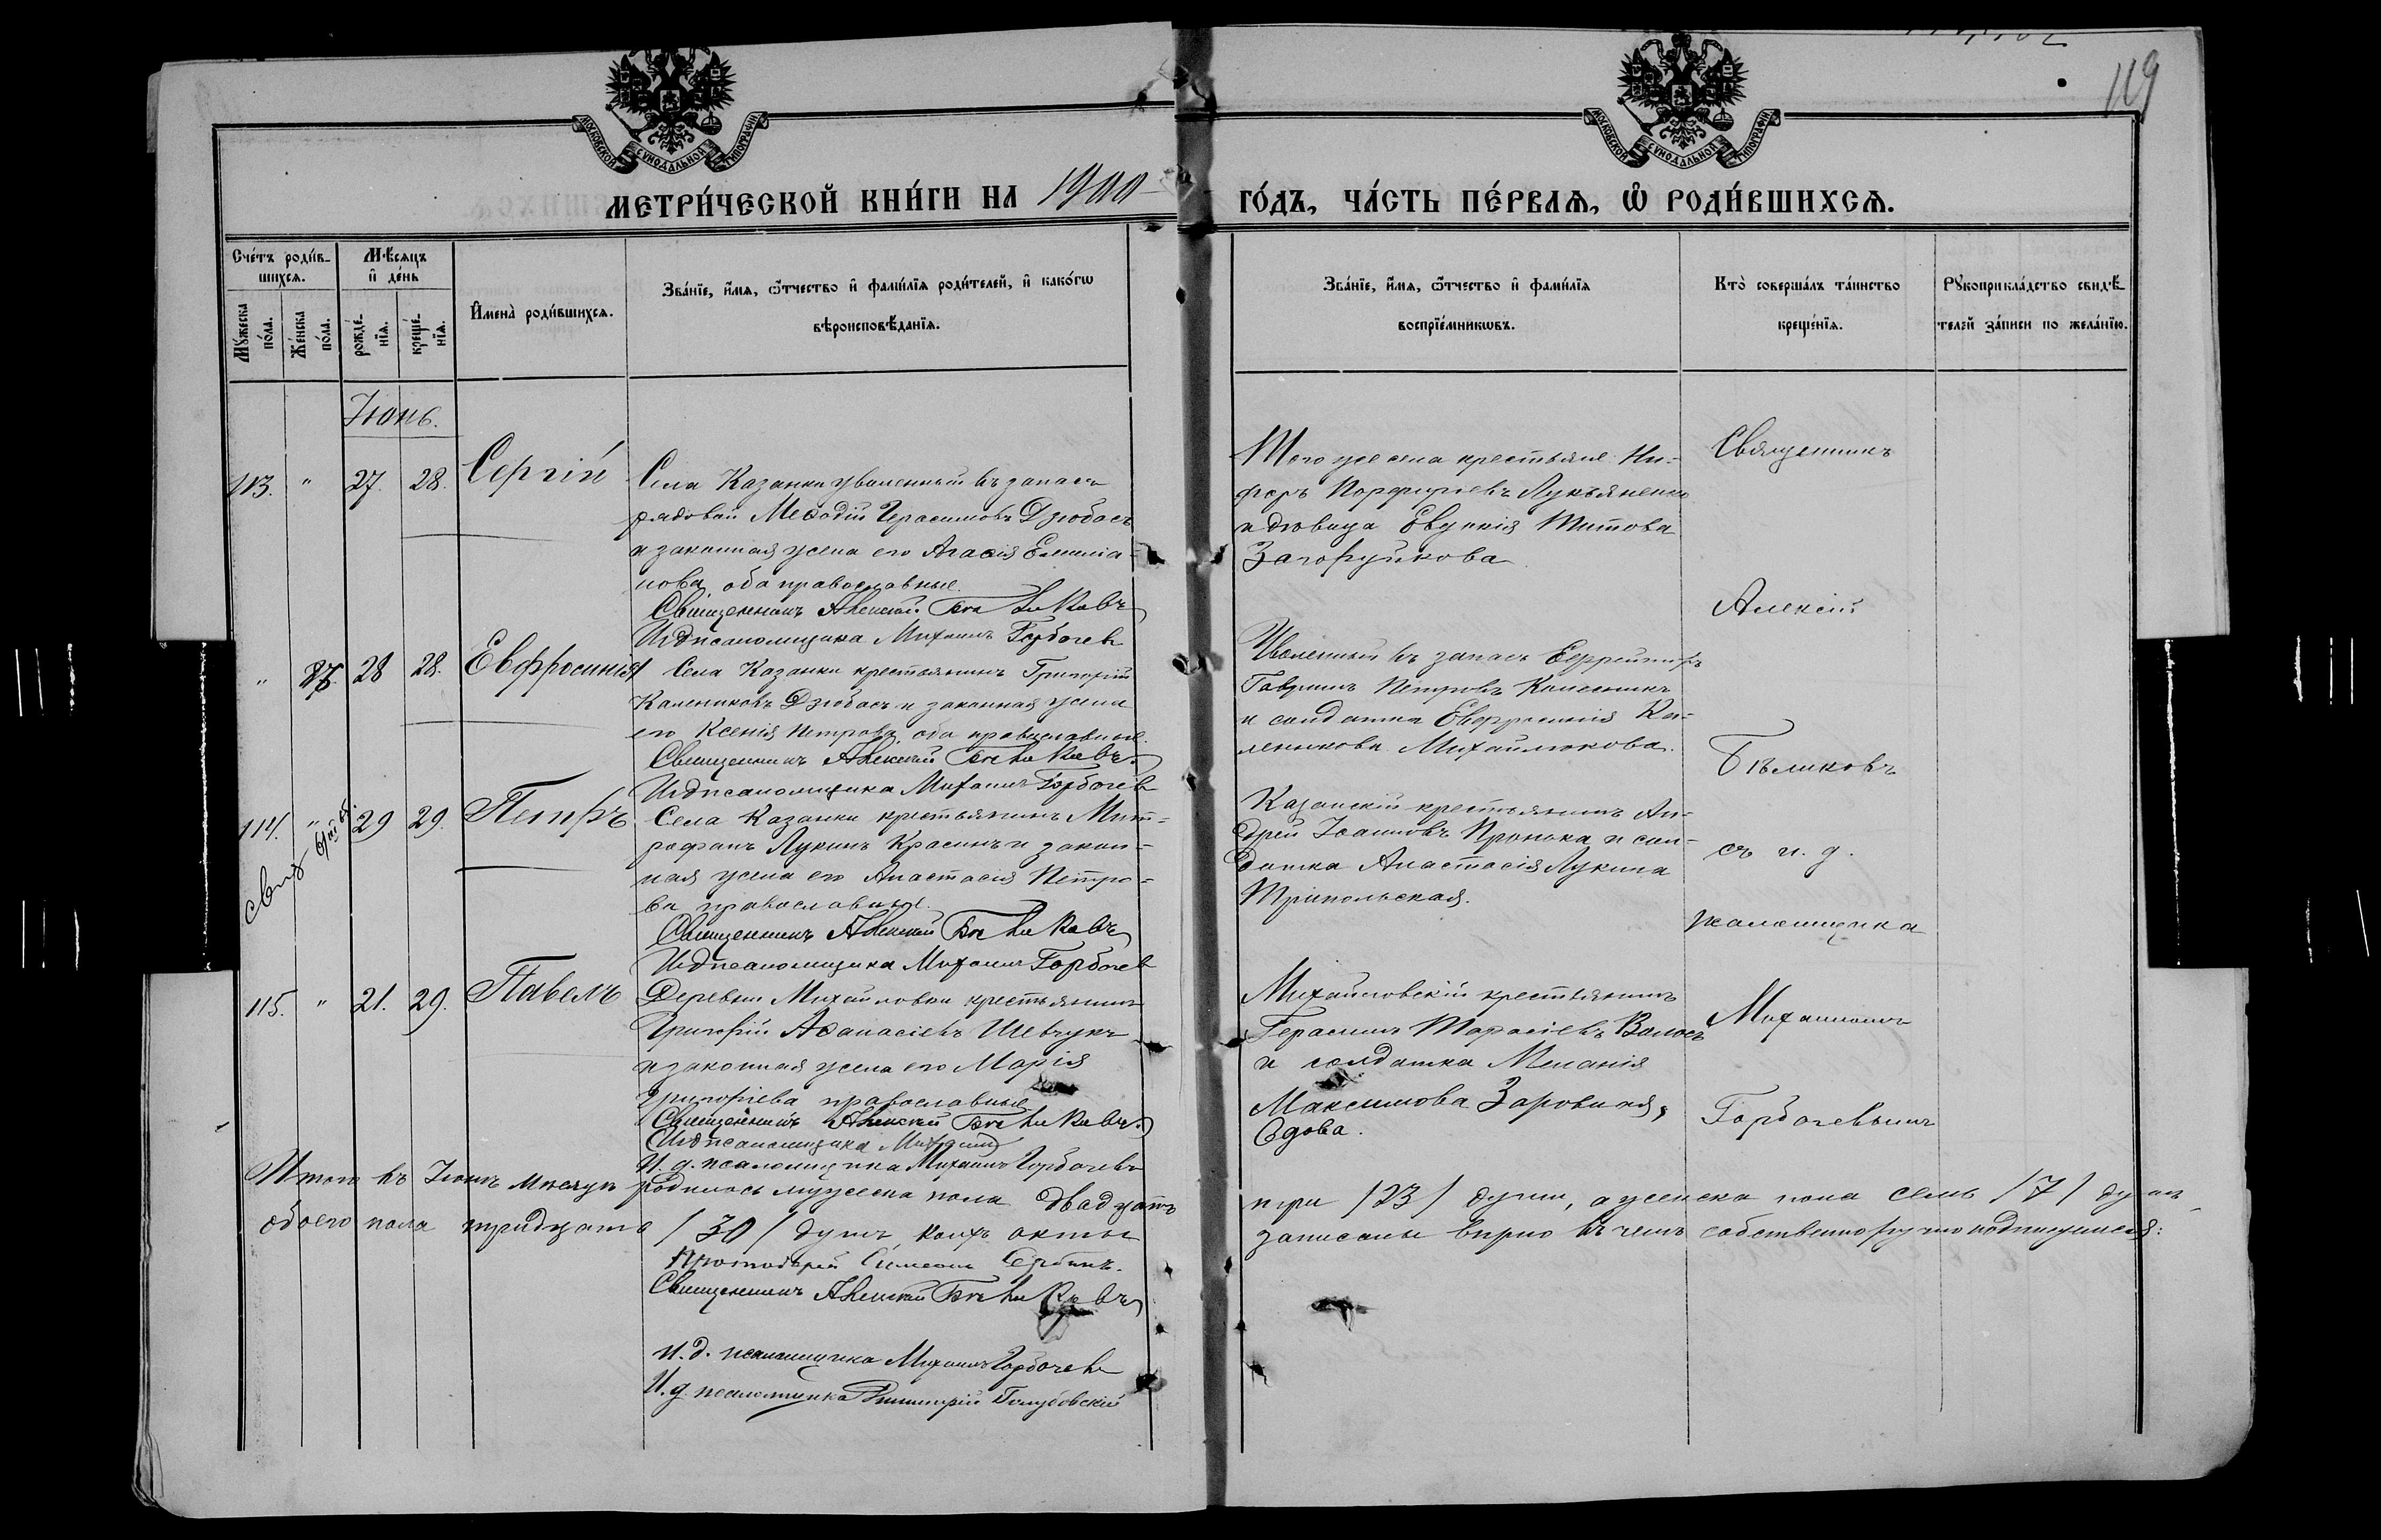 119
МОСКОВСКОЙ СѴНОДАЛЬНОЙ ТИПОГРАФІИ
МОСКОВСКОЙ СѴНОДАЛЬНОЙ ТИПОГРАФІИ
МЕТРИ́ЧЕСКОЙ КНИ́ГИ НА 1900 ГО́ДЪ, ЧА́СТЬ ПЕ́РВАѦ, Ѡ҆ РОДИ́ВШИХСѦ.
Сче́тъ роди́в-
шихсѧ.
Мꙋ́жеска
по́ла.
Же́нска
по́ла.
Мѣ́сѧцъ
и҆ де́нь
рожде́-
нїѧ.
креще́-
нїѧ.
И҆мена̀ роди́вшихсѧ.
Зва́нїе, и҆́мѧ, ѻ҆́тчество и҆ фами́лїѧ роди́телей, и҆ како́гѡ
вѣроисповѣ́данїѧ.
Зва́нїе, и҆́мѧ, ѻ҆́тчество и҆ фами́лїѧ
воспрїе́мникѡвъ.
Кто̀ соверша́лъ та́инство
креще́нїѧ.
Рꙋкоприкла́дство свидѣ́-
телей за́писи по жела́нїю.
Іюнь.
113. " 27. 28. Сергій
Села Казанки уволенный въ запасъ
рядовой Меѳодій Герасимовъ Дзюбасъ
и законная жена его Агаѳія Емилiа-
нова, оба православные.
Священникъ Алексій Бѣликовъ
И д псаломщика Михаилъ Горбачев
Того же села крестьяне Ни-
форъ Порфирьевъ Лукьяненко
и дѣвица Евгенія Титова
Загоруйкова
Священникъ
Алексій
Бѣликовъ
съ и. д.
псаломщика
Михаиломъ
Горбачевымъ
" 87. 28 28. Евфросинія
Села Казанки крестьянинъ Григорій
Калениковъ Дзюбасъ и законная жена
его Ксенія Петрова, оба православные.
Священникъ Алексій Бѣликовъ.
И д псаломщика Михаилъ Горбачев
Уволенный въ запасъ Ефрейторъ
Гавриилъ Петровъ Колесникъ
и солдатка Евфросинія Ка-
леникова Михайлюкова.
114. " 29 29. Петръ
Села Казанки крестьянинъ Мит-
рофанъ Лукинъ Красинъ и закон-
ная жена его Анастасія Петро-
ва православные.
Священникъ Алексій Бѣликовъ
И д псаломщика Михаилъ Горбачев
Казанскій крестьянинъ Ан-
дрей Іоанновъ Пронька и сол-
датка Анастасія Лукина
Трипольская.
115. " 21. 29. Павелъ
Деревни Михайловки крестьянинъ
Григорій Аѳанасіевъ Шевчукъ
и законная жена его Марія
Григоріева православные
Священникъ Алексій Бѣликовъ.
И д псаломщика Михаилъ
И. д. псаломщика Михаилъ Горбачевъ
Михайловскій крестьянинъ
Герасимъ Тарасіевъ Волосъ
и солдатка Меланія
Максимова Заровная,
вдова.
Итого въ Іюнѣ мѣсяцѣ родилось мужеска пола двадцать три /23/ души, а женска пола семь /7/ душъ
обоего пола тридцать /30/ душъ, коихъ акты записаны вѣрно въ чемъ собственноручно подпишемся:
Протоіерей Симеонъ
Священникъ Алексій Бѣликовъ
И. д. псаломщика Михаилъ Горбачевъ
И. д. псаломщика Димитрій Голубовскій